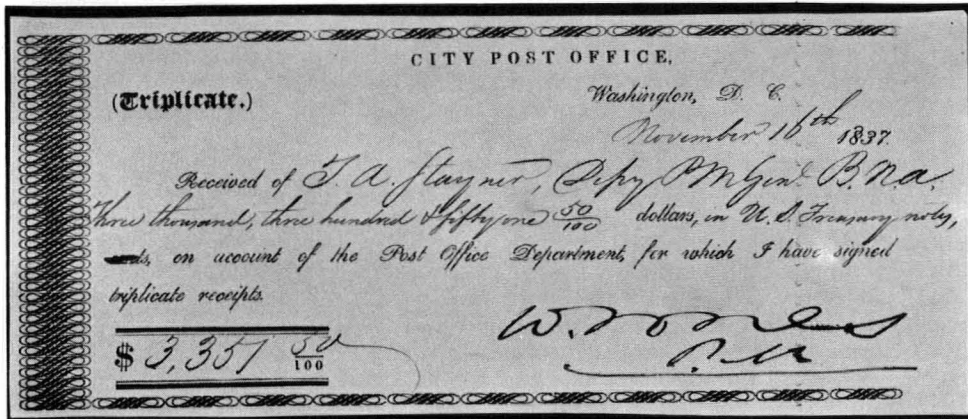 CITY POST OFFICE,
(Triplicate.)
Washington, D. C.
November 16th 1837.
Received of T. A. Stayner, Depy P M Genl. B. N. A.
three thousand, three hundred & fifty one 50/100 dollars, in U. S. Treasury notes,
on account of the Post Office Department, for which I have signed
triplicate receipts.
$ 3,351 50/100
W.
P. M